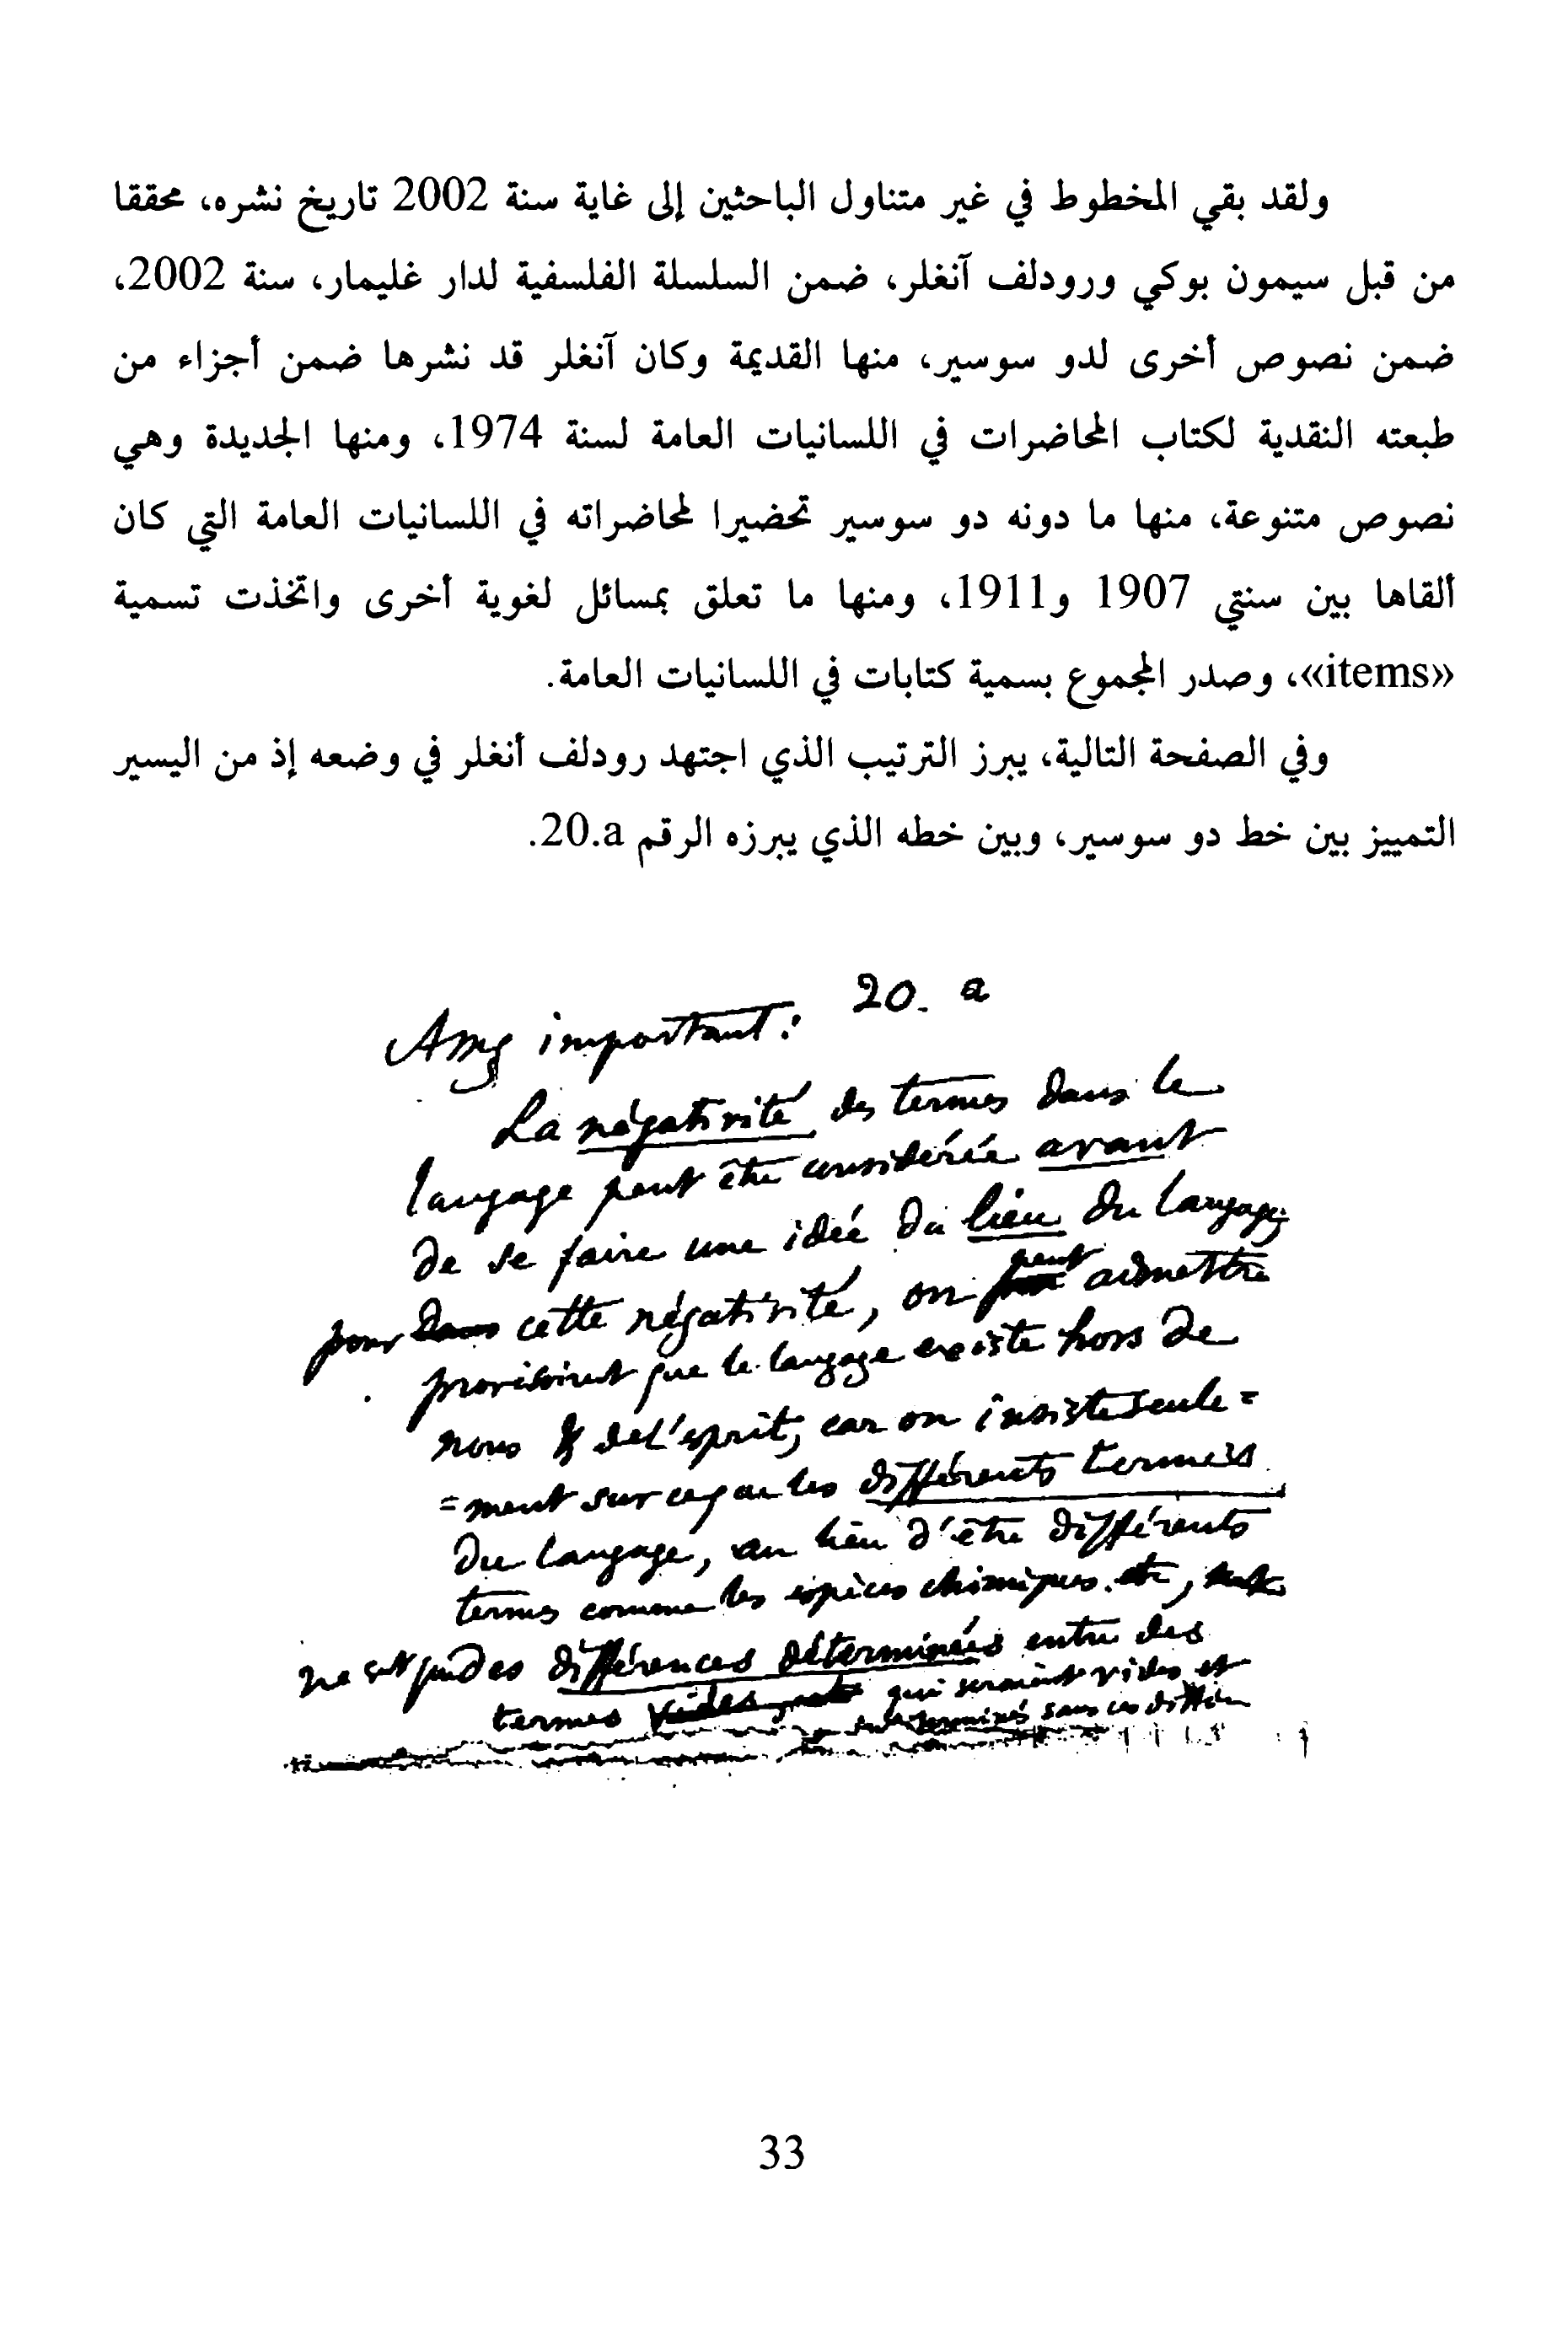 ولقد بقي المخطوط في غير متناول الباحثين إلى غاية سنة 2002 تاريخ نشره، محققا
من قبل سيمون بوكي ورودلف آنغلر، ضمن السلسلة الفلسفية لدار غليمار، سنة 2002،
ضمن نصوص أخرى لدو سوسير، منها القديمة وكان آنغلر قد نشرها ضمن أجزاء من
طبعته النقدية لكتاب المحاضرات في اللسانيات العامة لسنة 1974، ومنها الجديدة وهي
نصوص متنوعة، منها ما دونه دو سوسير تحضيرا لمحاضراته في اللسانيات العامة التي كان
ألقاها بين سنتي 1907 و1911، ومنها ما تعلق بمسائل لغوية أخرى واتخذت تسمية
«items»، وصدر المجموع بسمية كتابات في اللسانيات العامة.
وفي الصفحة التالية، يبرز الترتيب الذي اجتهد رودلف أنغلر في وضعه إذ من اليسير
التمييز بين خط دو سوسير، وبين خطه الذي يبرزه الرقم 20.a.
20. a
important:
La négativité des termes dans le
langage peut être considérée avant
de se faire une idée du lieu du langage;
pour cette négativité, on peut admettre
provisoirmt que le langage existe hors de
nous & de l'esprit, car on insiste seule=
=ment sur ce que les différents termes
du langage, au lieu d'être différents
termes comme les espèces chimiques, etc,
ne sont que des différences déterminées entre des
termes qui seraient vides et
indéterminés sans ces différen
33